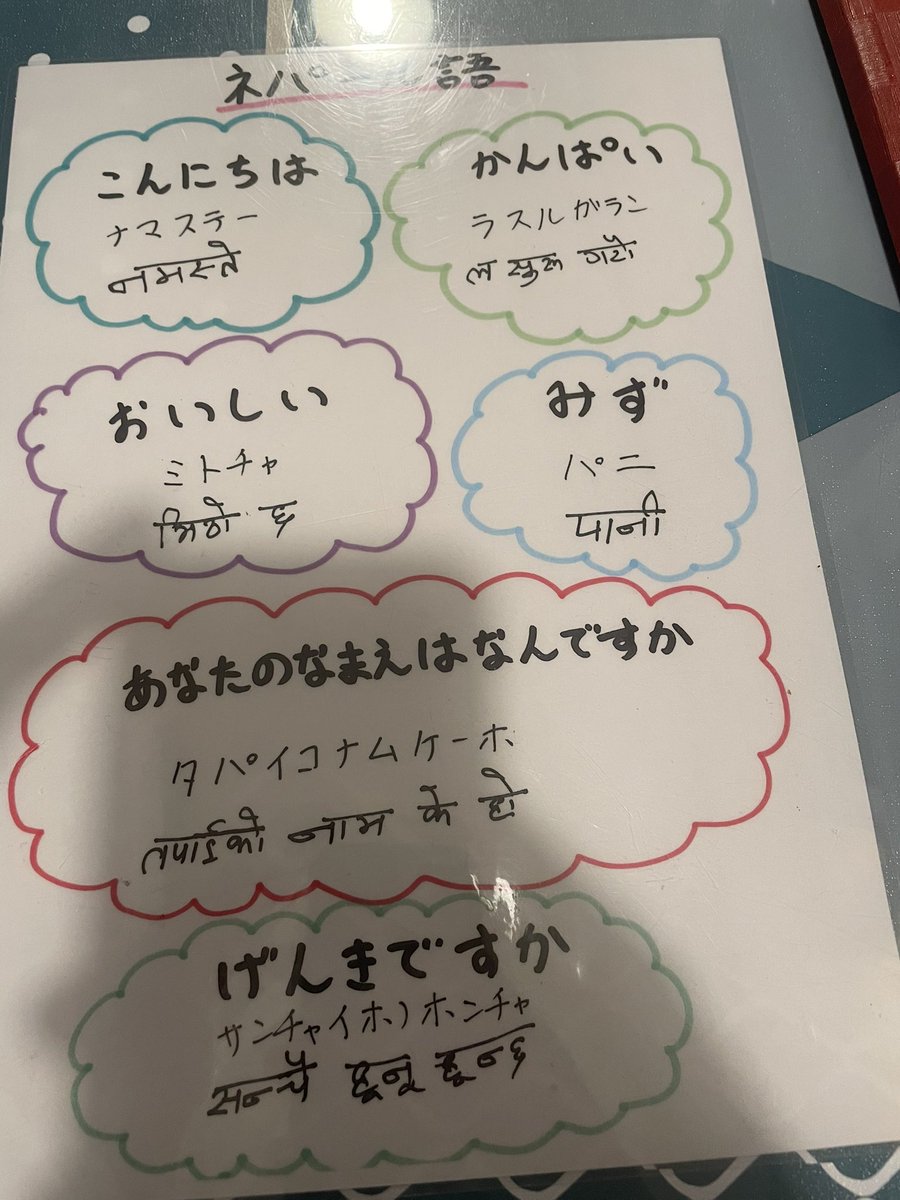 ネパール語
こんにちは
ナマステー
नमस्ते
かんぱい
ラスルガラン
ल सुरु गरौ
おいしい
ミトチャ
मिठो छ
みず
パニ
पानी
あなたのなまえはなんですか
タパイコナムケーホ
तपाईको नाम के हो
げんきですか
サンチャイホノホンチャ
सन्चै हुनु हुन्छ